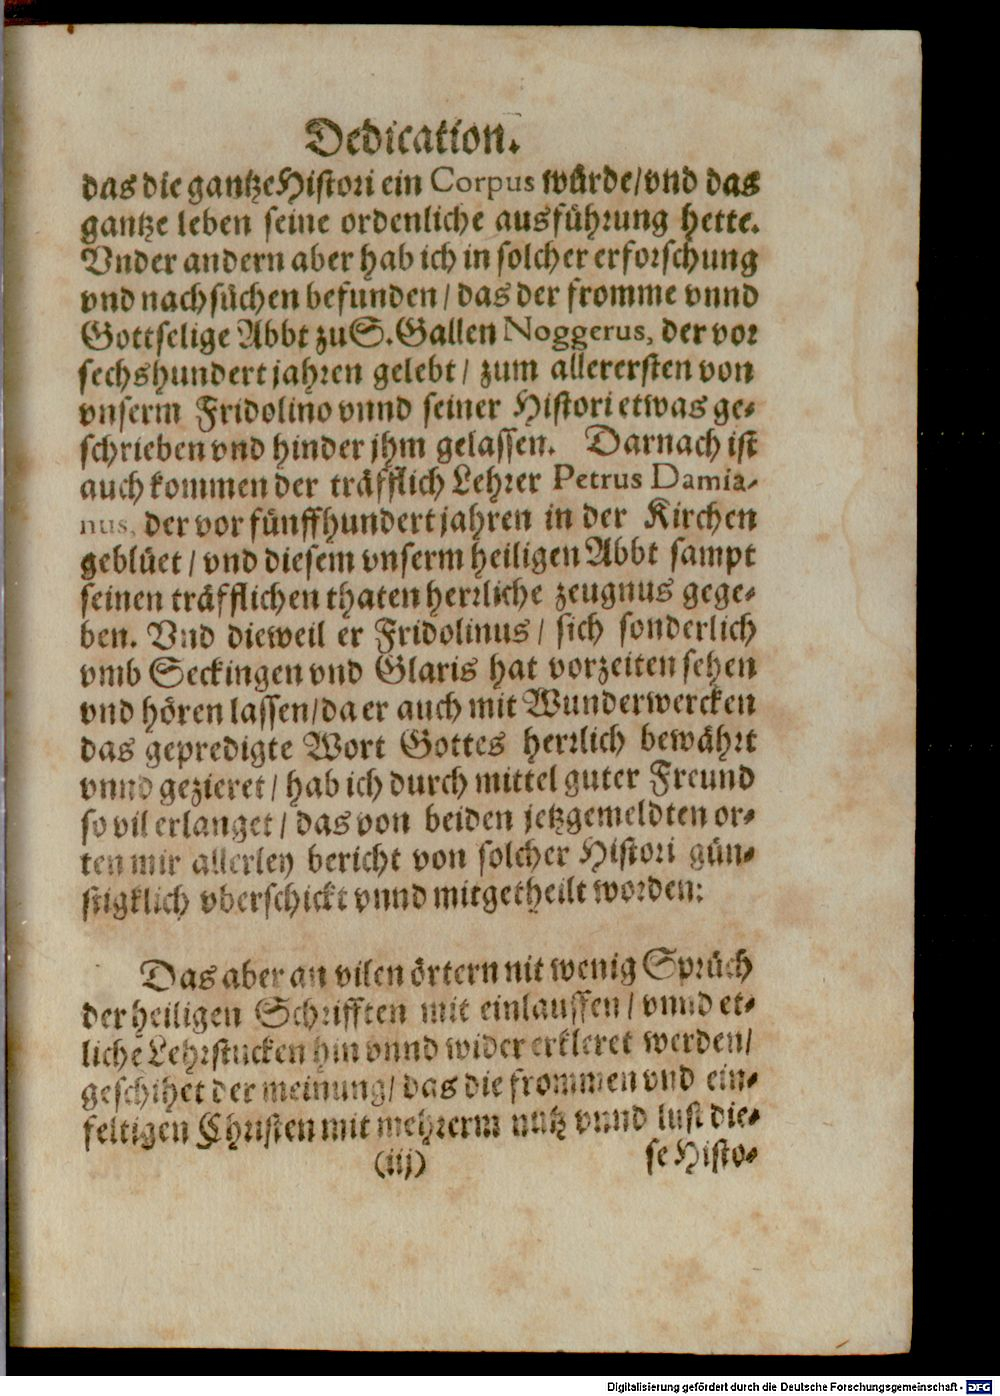 Dedication.
das die gantze Histori ein Corpus würde/vnd das
gantze leben seine ordenliche ausführung hette.
Vnder andern aber hab ich in solcher erforschung
vnd nachsüchen befunden/das der fromme vnnd
Gottselige Abbt zu S.Gallen Noggerus, der vor
sechshundert jahren gelebt/ zum allerersten von
vnserm Fridolino vnnd seiner Histori etwas ge-
schrieben vnd hinder jhm gelassen. Darnach ist
auch kommen der träfflich Lehrer Petrus Damia-
nus, der vor fünffhundert jahren in der Kirchen
geblüet/ vnd diesem vnserm heiligen Abbt sampt
seinen träfflichen thaten herrliche zeugnus gege-
ben. Vnd dieweil er Fridolinus/ sich sonderlich
vmb Seckingen vnd Glaris hat vorzeiten sehen
vnd hören lassen/da er auch mit Wunderwercken
das gepredigte Wort Gottes herrlich bewährt
vnnd gezieret/ hab ich durch mittel guter Freund
so vil erlanget/ das von beiden jetzgemeldten or-
ten mir allerley bericht von solcher Histori gün-
stigklich vberschickt vnnd mitgetheilt worden:
Das aber an vilen örtern nit wenig Sprüch
der heiligen Schrifften mit einlauffen/ vnnd et-
liche Lehrstucken hin vnnd wider erkleret werden/
geschihet der meinung/ das die frommen vnd ein-
feltigen Christen mit mehrerm nutz vnnd lust die-
(iij)
se Histo-
Digitalisierung gefördert durch die Deutsche Forschungsgemeinschaft - DFG